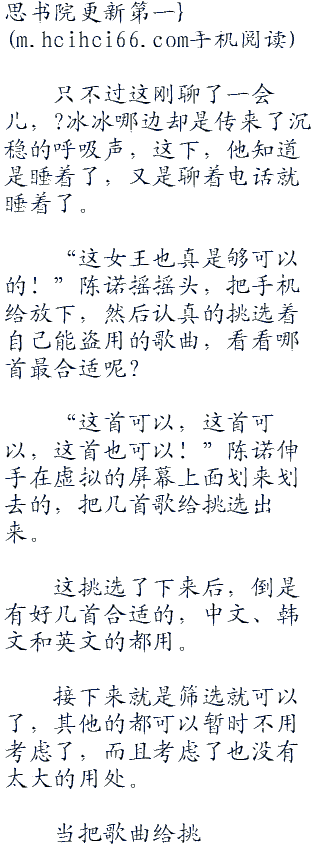 思书院更新第一}
(m.hcihci66.com手机阅读)
只不过这刚聊了一会
儿，?冰冰哪边却是传来了沉
稳的呼吸声，这下，他知道
是睡着了，又是聊着电话就
睡着了。
“这女王也真是够可以
的！”陈诺摇摇头，把手机
给放下，然后认真的挑选着
自己能盗用的歌曲，看看哪
首最合适呢？
“这首可以，这首可
以，这首也可以！”陈诺伸
手在虚拟的屏幕上面划来划
去的，把几首歌给挑选出
来。
这挑选了下来后，倒是
有好几首合适的，中文、韩
文和英文的都用。
接下来就是筛选就可以
了，其他的都可以暂时不用
考虑了，而且考虑了也没有
太大的用处。
当把歌曲给挑